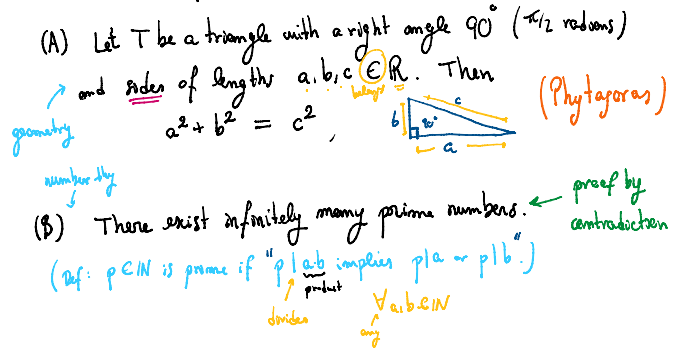 (A) Let T be a triangle with a right angle 90° (π/2 radians)
and sides of lengths a, b, c ∈ ℝ. Then
belongs
geometry
a² + b² = c²,
b 90° c a
(Phytagoras)
number thy
(B) There exist infinitely many prime numbers.
proof by
contradiction
(Def: p ∈ ℕ is prime if "p | a·b implies p|a or p|b".)
product
divides
∀ a,b ∈ ℕ
any